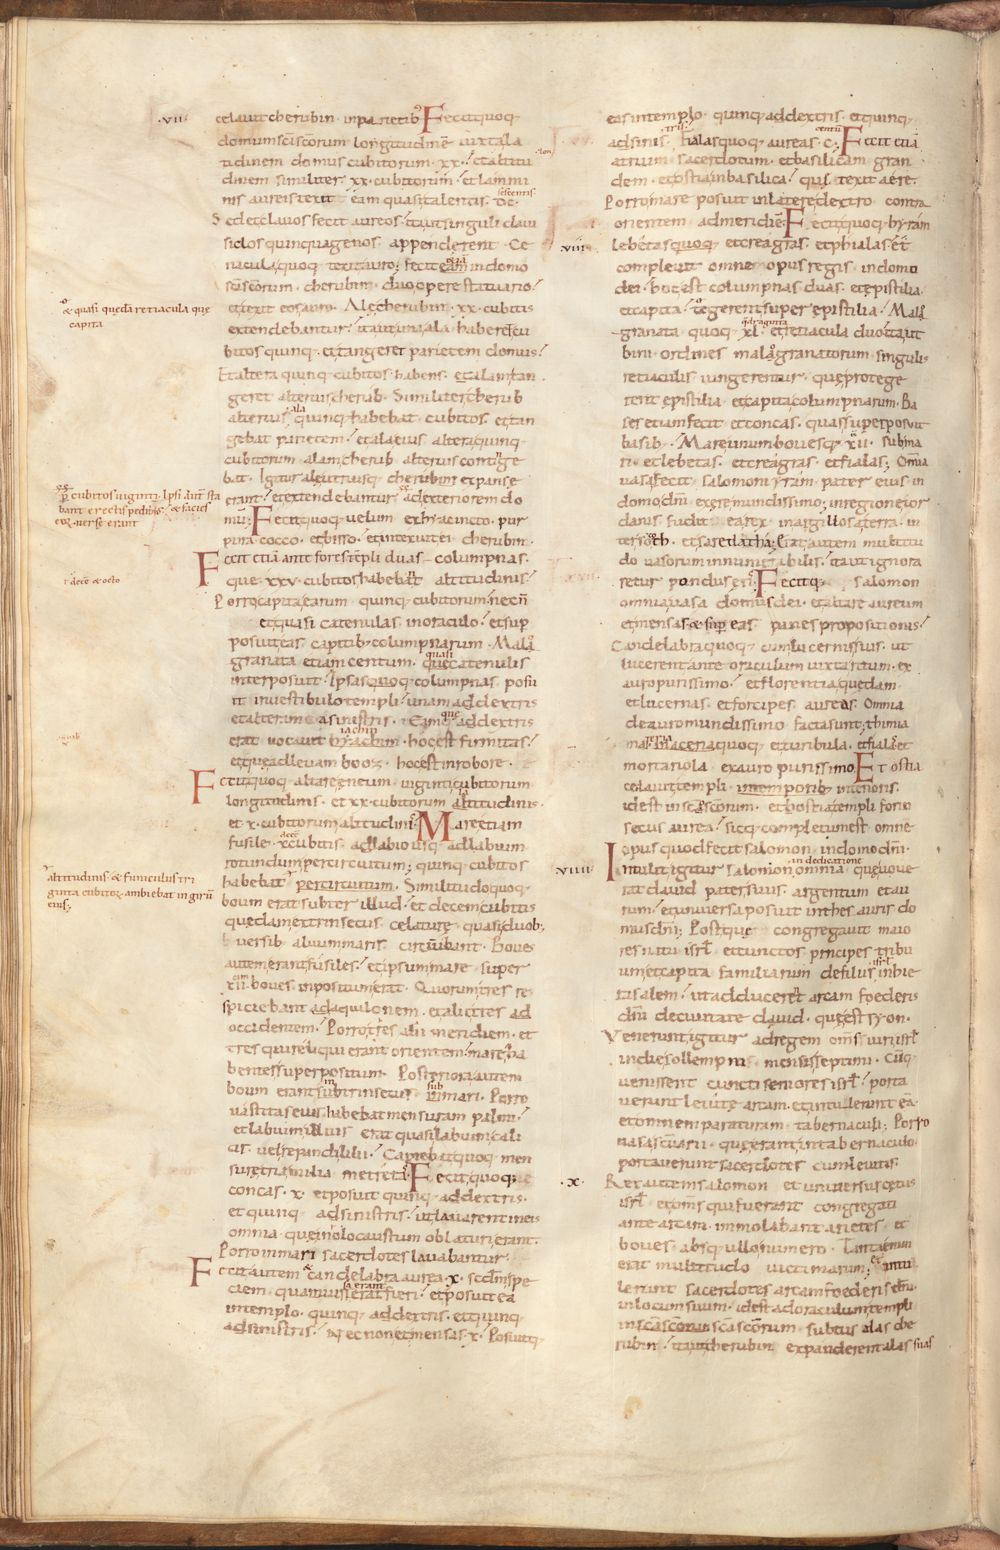 ·VII·
celauit cherubin in parietib; Fecit quoq;
domum scīscorum longitudinē iuxta la
titudinem domus cubitorum ·xx· et altitu
dinem similiter xx· cubitorum· et lammi
nis aureis texit eam quasi talentis· DC·
sescentis
Sed et clauos fecit aureos· ita ut singuli claui
siclos quinquagenos appenderent· Ce
nacula quoq; texit auro; fecit etiā in domo
scīscorum cherubin duo opere statuario
et texit eos auro· Alę cherubin xx· cubitis
extendebantur· ita ut una ala haberet cu
bitos quinq· et tangeret parietem domus
Et altera quinq· cubitos habens· et alam tan
geret alterius cherub· Similiter cherub
alterius ala quinq; habebat cubitos· et tan
gebat parietem· et ala eius altera quinq;
cubitorum alam cherub alterius contige
bat· Igitur alę utriusq; cherubin expansę
erant· et extendebantur ad exteriorem do
mū; Fecit quoq; uelum ex hyacincto· pur
pura· cocco· et bisso· et intexuit ei cherubin·
Fecit etiā ante fores tēpli duas columpnas·
que xxx·v· cubitos habebāt altitudinis
Porro capita earum quinq; cubitorum· necñ
et quasi catenulas in oraculo· et sup
posuit eas capitib; columpnarum· Mala
granata etiam centum· quę catenulis
quasi
interposuit· Ipsas quoq; columpnas posu
it in uestibulo templi· unam ad dextris
et alteram a sinistris· Eam quę ad dextris
erat uocauit hyachin· hoc est firmitas
iachin
et que ad leuam booz· hoc est in robore·
Fecit quoq; altare ęneum uiginti cubitorum
longitudinis· et xx· cubitorum altitudinis
et x· cubitorum altitudinē· Mare etiam
fusile x· cubitis a labio usq; ad labium
rotundum per circuitum; quinq; cubitos
habebat percircuitum· Similitudo quoq;
boum erat subter illud· et decem cubitis
quędam extrinsecus celaturę quasi duob;
uersib· aluum maris circūibant· Boues
autem erant fusiles· et ipsum mare super
xii· boues inpositum erat· Quorum tres re
spiciebant ad aquilonem· et alii tres ad
occidentem· Porro tres alii meridiem· et
tres qui reliqui erant orientem· mare ha
bentes superpositum· Posteriora autem
boum erant intrinsecus sub mari· Porro
uastitas eius habebat mensuram palmi·
et labium illius erat quasi labium cali
cis· uel repandi lilii· Capiebat quoq; men
surę tria milia metretas· Fecit quoque
concas· x· et posuit quinq; ad dextris·
et quinq; ad sinistris· ut lauarent in eis
omnia quę in olocaustum oblaturi erant·
Porro in mari sacerdotes lauabantur·
Fecit autem candelabra aurea· x· scdm spe
ciem qua iusserat fieri· et posuit ea
in templo· quinq; ad dextris· et quinq;
ad sinistris· Nec non et mensas· x· Posuitq;
& quasi quędā retiacula que
capita
p cubitos uiginti· Ipsi aut̄ sta
bant erectis pedib; & facies
eoꝝ uersę erant
decē & octo
altitudinis & funiculus tri
ginta cubitoꝝ ambiebat in girū
eius;
eas in templo· quinq; ad dextris· et quinq;
ad sinis tris· Fialas quoq; aureas· c· Fecit etiā
centū
atrium sacerdotum· et basilicam gran
dem· et ostia in basilica· quę texit aere·
Porro mare posuit in latere dextro contra
orientem ad meridiē· Fecit quoq; hyram
·VIII·
lebetas quoq; et creagras· et phialas· et
compleuit omne opus regis in domo
dei· hoc est columpnas duas· et epistilia·
et capita· et quę tegerent super epistilia· Mala
granata quoq; xl· et retiacula duo· ita ut
quadraginta
bini ordines malagranatorum singulis
retiaculis iungerentur· quę protege
rent epistilia et capita columpnarum· Ba
ses etiam fecit et concas· quas superposuit
basib· Mare unum· bouesq; xii· sub ma
ri· et lebetas· et creagras· et fialas; Omia
uasa fecit salomoni yram· pater eius in
domo dnī· ex ere mundissimo; in regione ior
danis fudit ea rex· in argillosa terra· in
ter soth et saredatha; Erat autem multitu
do uasorum innumerabilis· ita ut ignora
retur pondus eris· Fecitq; salomon
omnia uasa domus dei· et altare aureum
et mensas· & sup eas panes propositionis·
Candelabra quoq; cum lucernis suis· ut
lucerent ante oraculum iuxta ritum· ex
auro purissimo· et florentia quędam
et lucernas· et forcipes aureos· Omnia
de auro mundissimo facta sunt; thimia
materia quoq; et turibula· et fialas et
mortariola· ex auro purissimo· Et ostia
celauit templi interioris·
id est in scāscorum· et hostia templi forin
secus aurea· sicq; completum est omne
opus quod fecit salomon in domo dnī·
·VIIII·
Intulit igitur salomon omnia quę uoue
in dedicatione
rat dauid pater suus· argentum et au
rum· et uniuersa posuit in thesauris do
mus dnī; Post quę congregauit maio
res natu isrł· et cunctos principes tribu
um et capita familiarum de filiis isrł in hie
rusalem· ut adducerēt arcam foederis
dnī de ciuitate dauid· quę est syon·
Venerunt igitur ad regem oms̄ uiri isrł
in die sollempni mensis septimi· Cūq;
uenissent cuncti seniores isrł· porta
uerunt leuitę arcam· et intulerunt eā·
et omnem paraturam tabernaculi; Porro
uasa scūarii quę erant in tabernaculo
portauerunt sacerdotes cum leuitis·
·X·
Rex autem salomon et uniuersus cetus
isrł et oms̄ qui fuerant congregati
ante arcam· immolabant arietes et
boues absq; ullo numero· Tanta enim
erat multitudo uictimarum; et intu
lerunt sacerdotes arcam foederis dnī
in locum suum· id est ad oraculum templi
in scāscorum· subtus alas che
rubin· ita ut cherubin expanderent alas suas